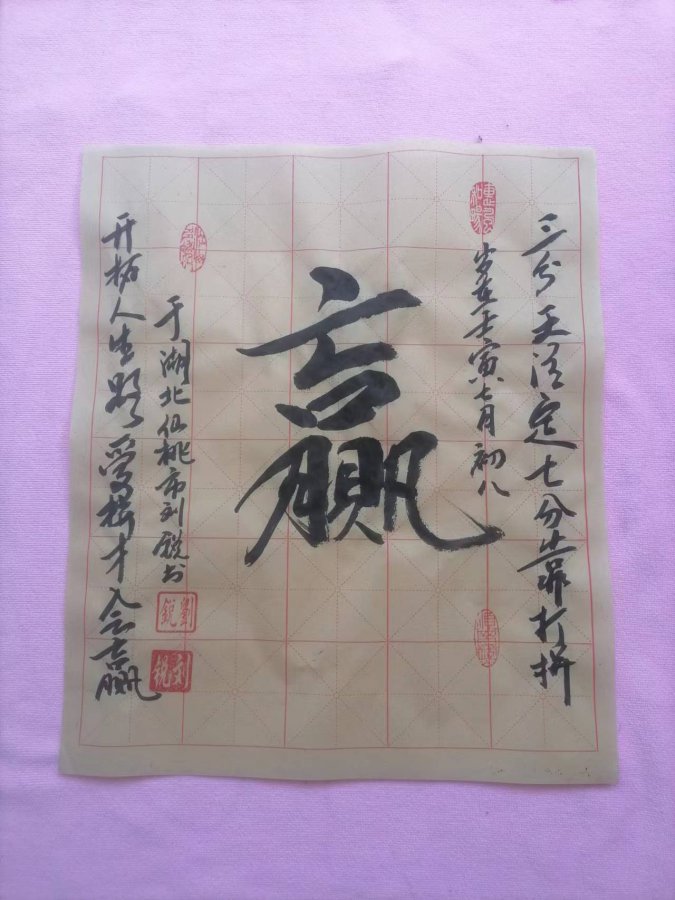 三分天注定七分靠打拼
惠风和畅
岁在壬寅七月初八
赢
于湖北仙桃市刘锐书
劉銳
刘锐
开拓人生路爱拼才会赢